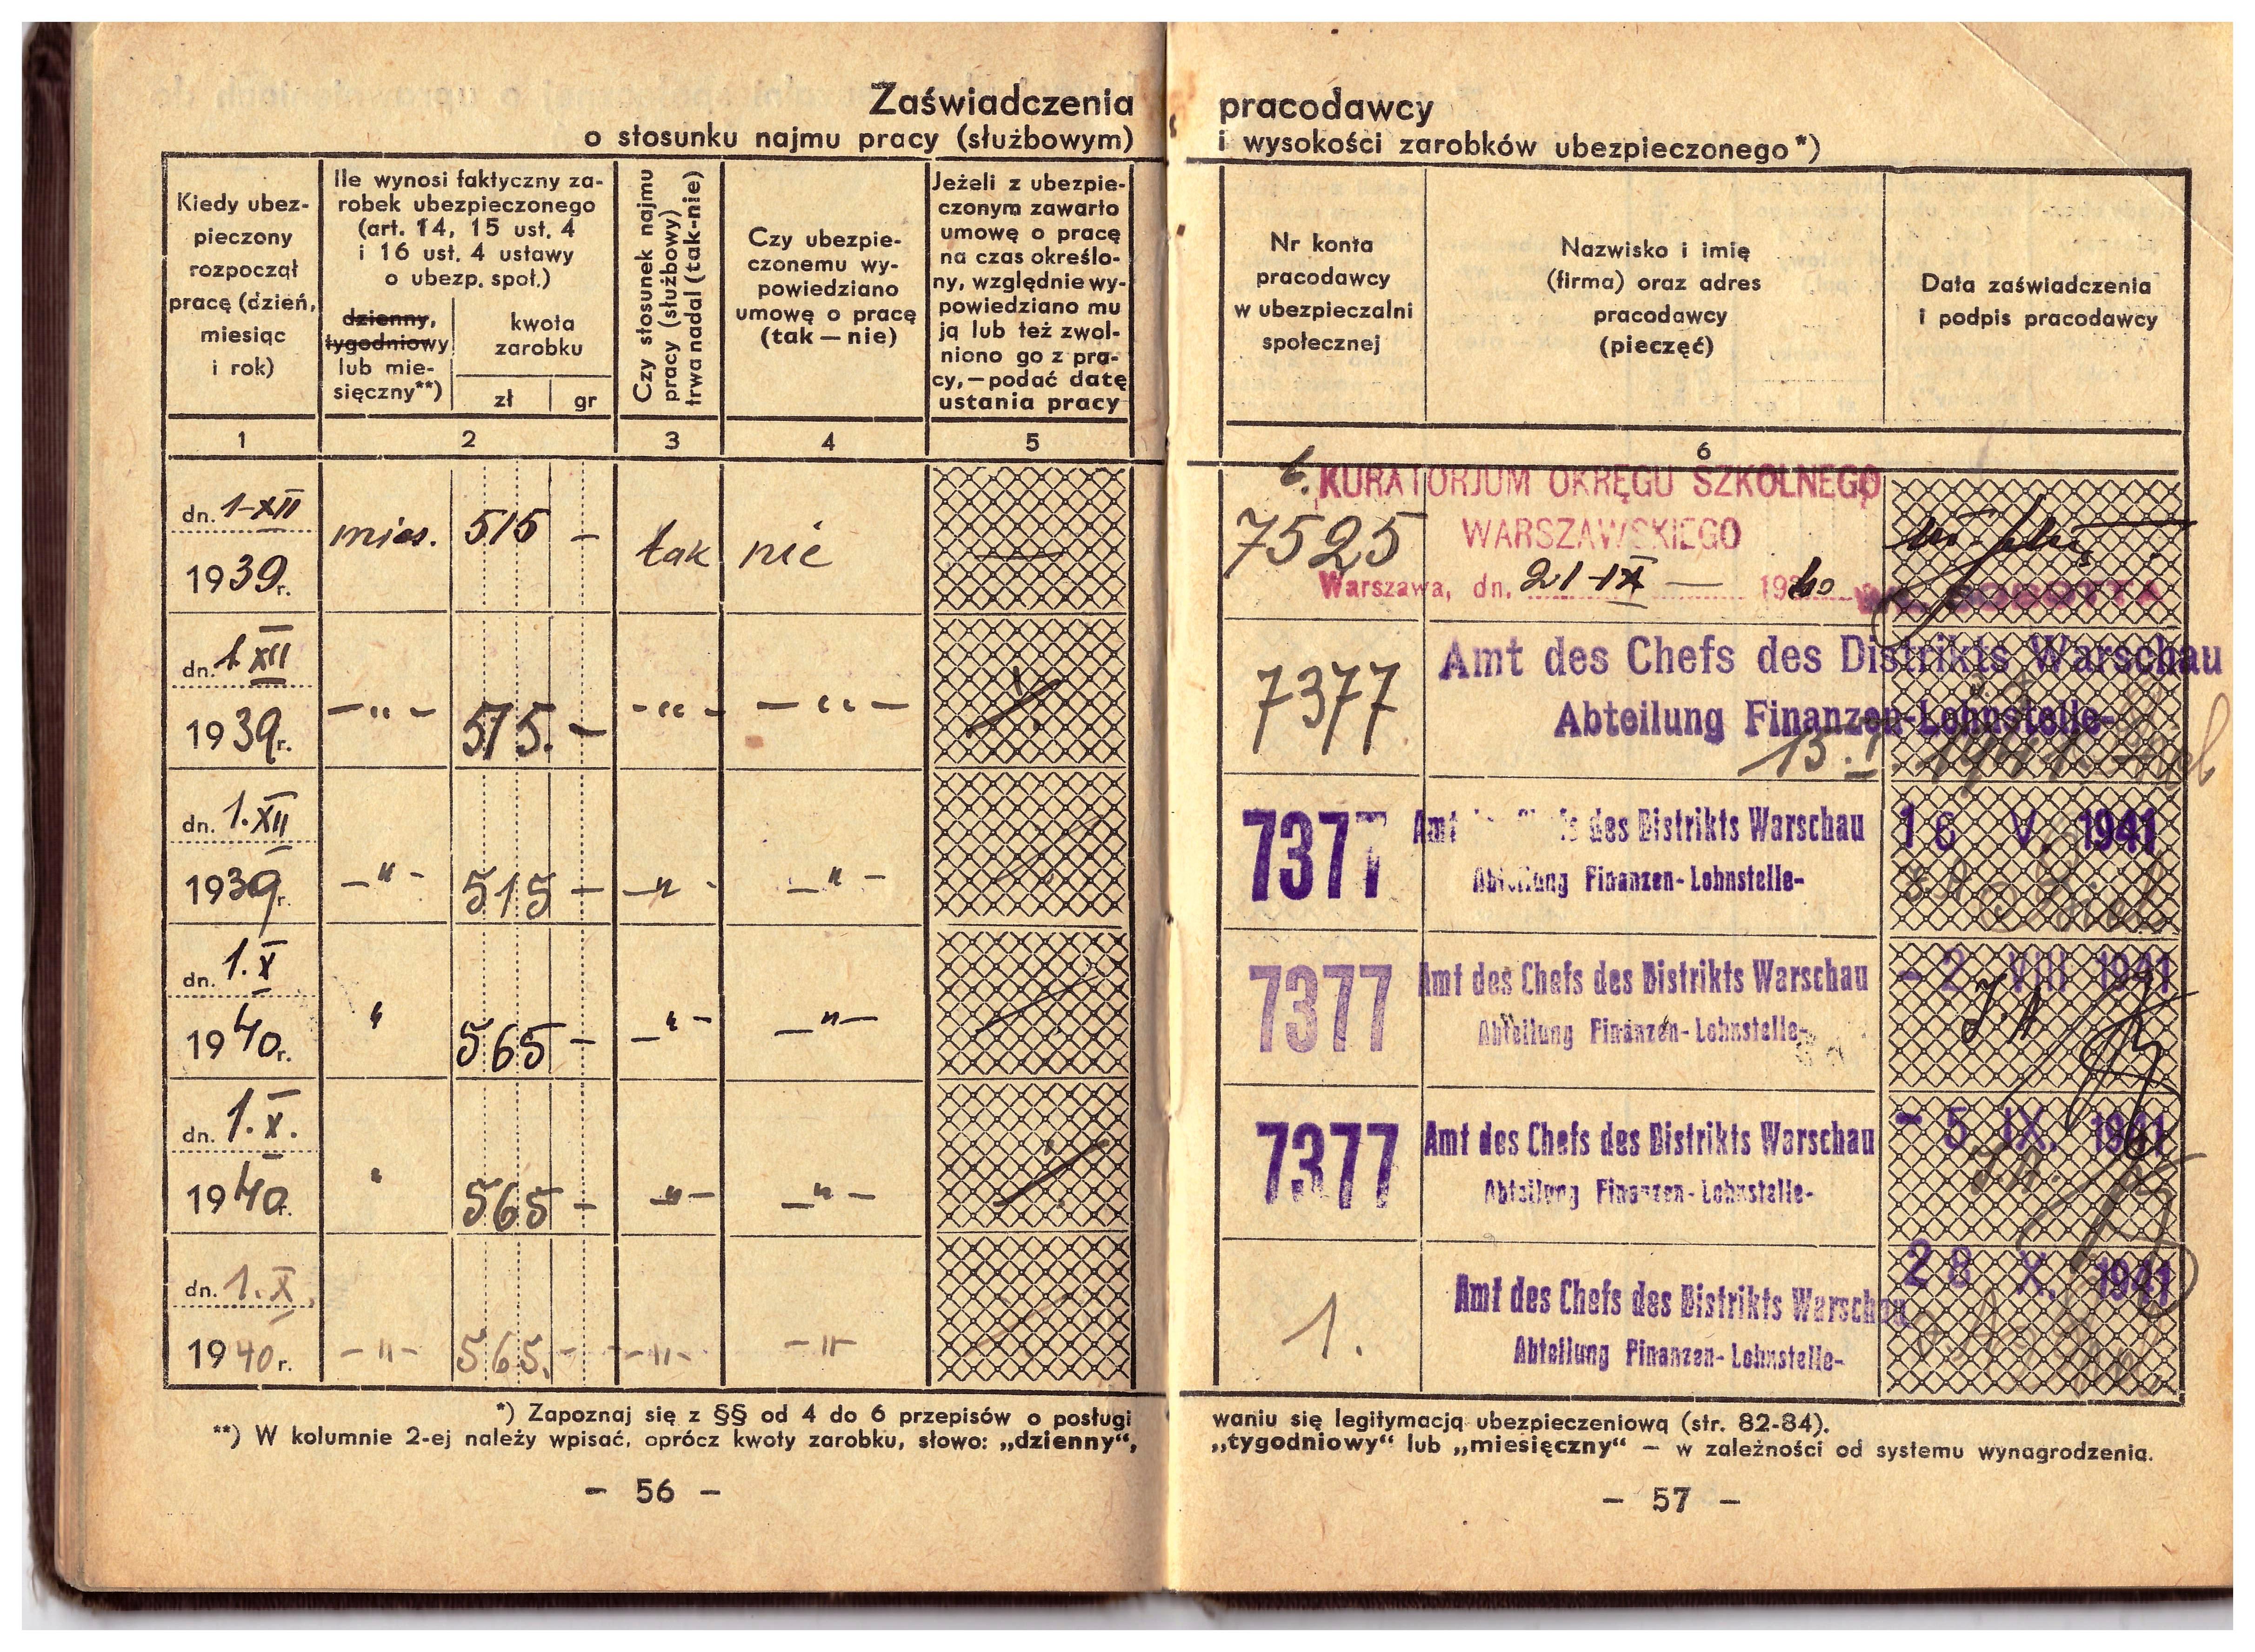 Zaświadczenia
o stosunku najmu pracy (służbowym)
Kiedy ubez-
pieczony
rozpoczął
pracę (dzień,
miesiąc
i rok)
Ile wynosi faktyczny za-
robek ubezpieczonego
(art. 14, 15 ust. 4
i 16 ust. 4 ustawy
o ubezp. społ.)
dzienny,
tygodniowy
lub mie-
sięczny**)
kwota
zarobku
zł gr
Czy stosunek najmu
pracy (służbowy)
trwa nadal (tak-nie)
Czy ubezpie-
czonemu wy-
powiedziano
umowę o pracę
(tak — nie)
Jeżeli z ubezpie-
czonym zawarto
umowę o pracę
na czas określo-
ny, względnie wy-
powiedziano mu
ją lub też zwol-
niono go z pra-
cy,—podać datę
ustania pracy
1 2 3 4 5
dn. 1-XII
1939 r. mies. 515 — tak nie —
dn. 1 XII
1939 r. — " — 575. — - " - — " —
dn. 1. XII
1939 r. — " - 515 — — " - — " —
dn. 1. X
1940 r. " 565 — — " — — " —
dn. 1. X.
1940 r. " 565 — — " — — " —
dn. 1. X.
1940 r. — " — 565. — — " — — " —
*) Zapoznaj się z §§ od 4 do 6 przepisów o posługi
**) W kolumnie 2-ej należy wpisać, oprócz kwoty zarobku, słowo: „dzienny",
— 56 —
pracodawcy
i wysokości zarobków ubezpieczonego*)
Nr konta
pracodawcy
w ubezpieczalni
społecznej
Nazwisko i imię
(firma) oraz adres
pracodawcy
(pieczęć)
Data zaświadczenia
i podpis pracodawcy
6
KURATORJUM OKRĘGU SZKOLNEGO
7525 WARSZAWSKIEGO
Warszawa, dn. 21-IX — 1940
7377 Amt des Chefs des Distrikts Warschau
Abteilung Finanzen-Lohnstelle-
15. I. 1941.
7377 Amt des Chefs des Distrikts Warschau 16 V. 1941
Abteilung Finanzen-Lohnstelle-
7377 Amt des Chefs des Distrikts Warschau - 2. VIII 1941
Abteilung Finanzen-Lohnstelle-
J.A.
7377 Amt des Chefs des Distrikts Warschau - 5. IX. 1941
Abteilung Finanzen-Lohnstelle-
J.A.
28 X. 1941
1. Amt des Chefs des Distrikts Warschau
Abteilung Finanzen-Lohnstelle-
waniu się legitymacją ubezpieczeniową (str. 82-84).
„tygodniowy" lub „miesięczny" — w zależności od systemu wynagrodzenia.
— 57 —